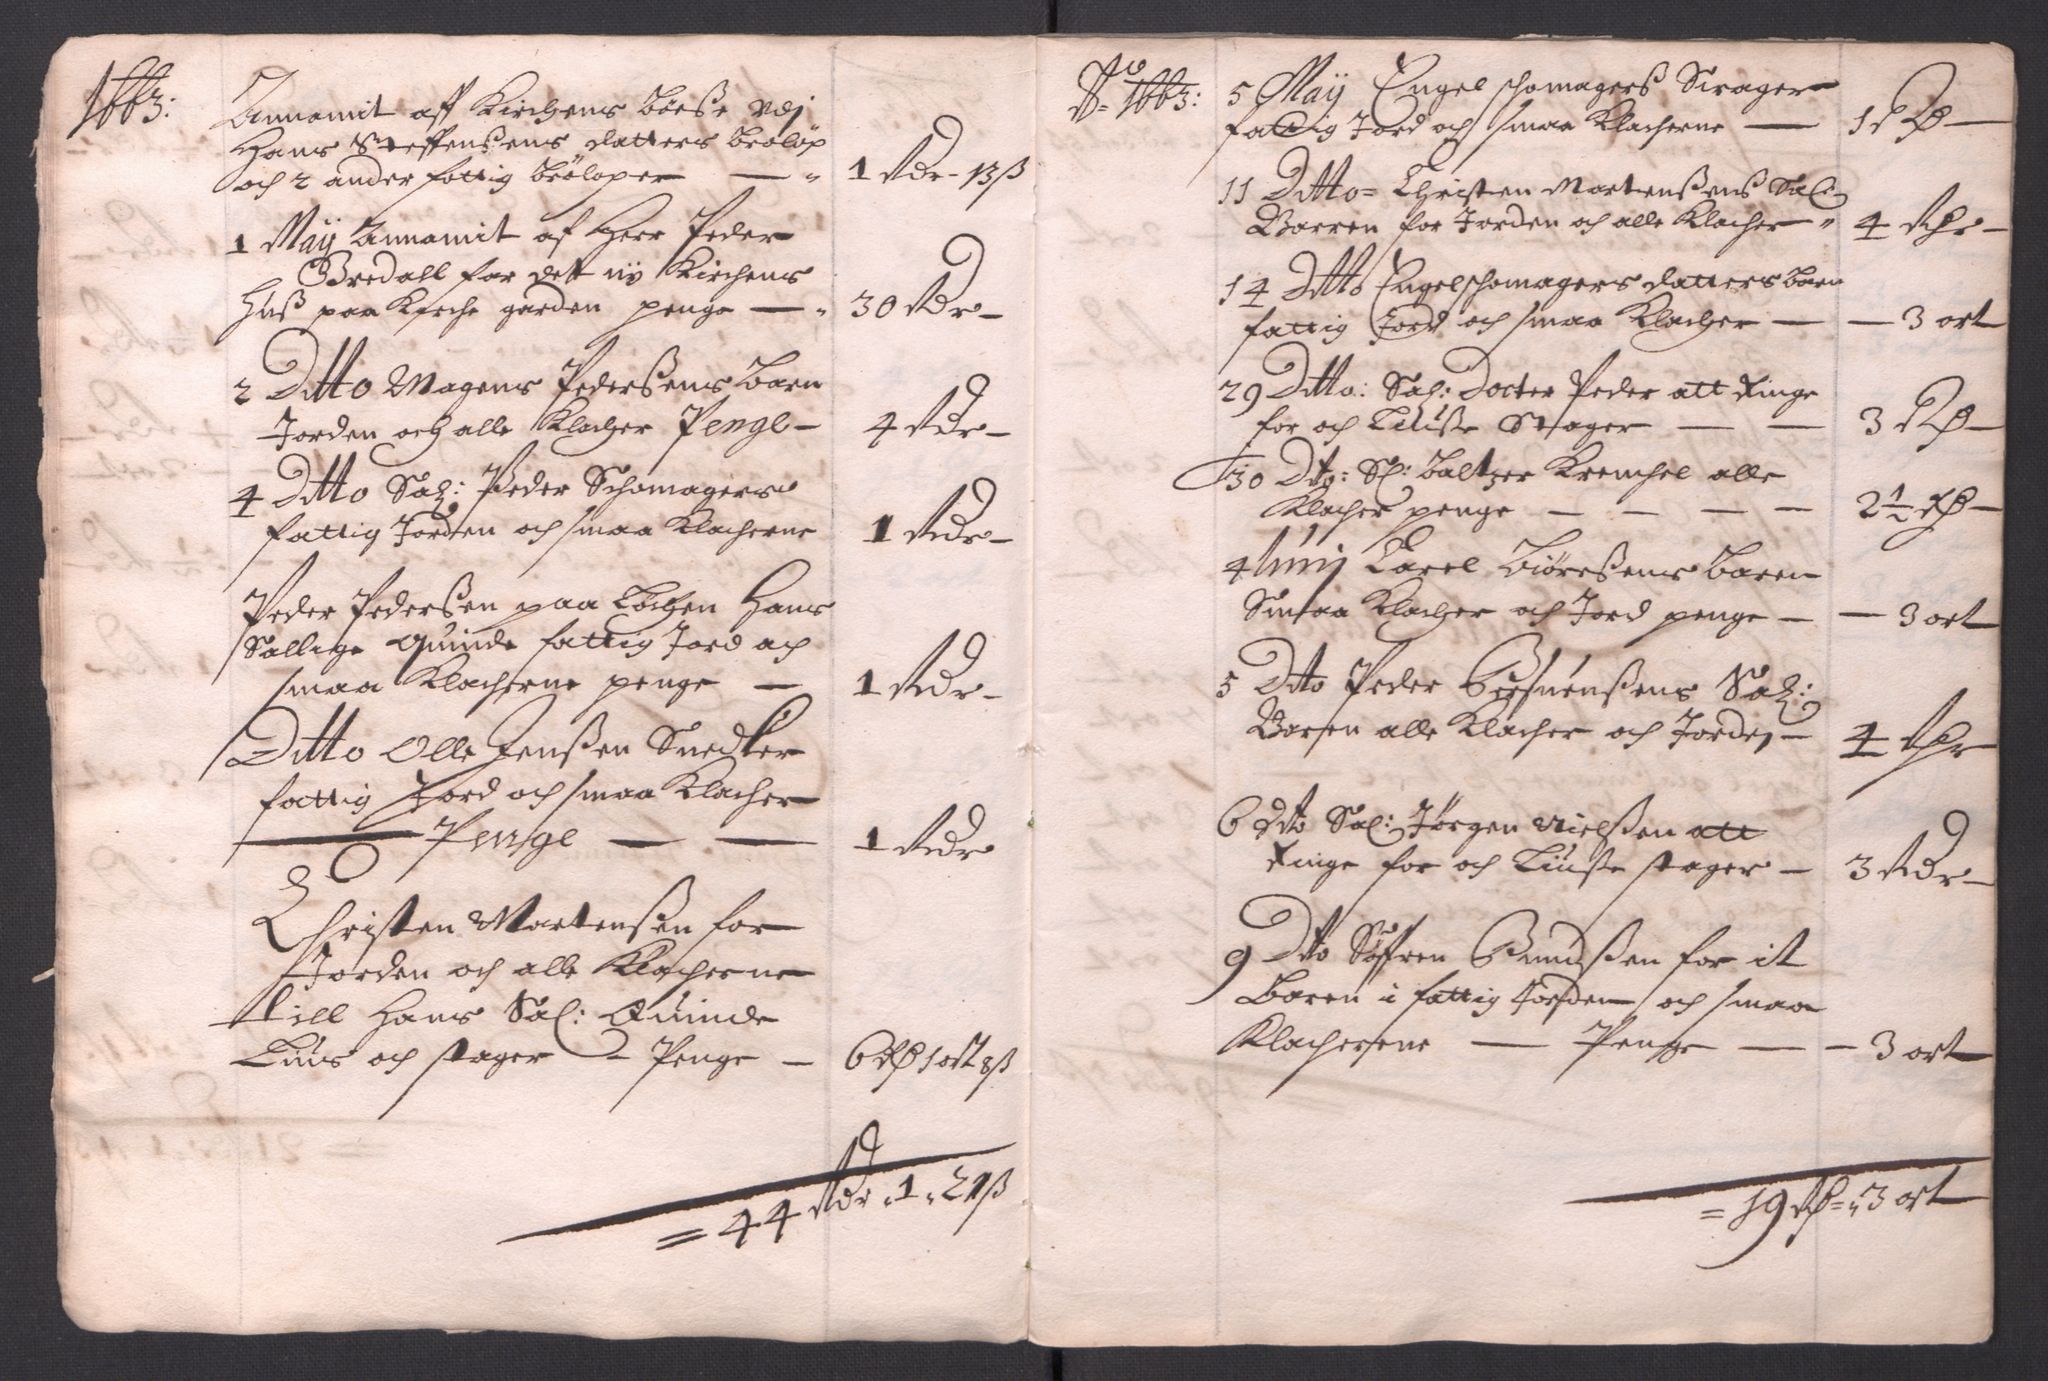 1663:
Annamit aff Kirchens böesse vdj
Hans Steffenssens datters brölöp
och 2 ander fattig brölöper — " 1 Rdr - 13 ß
1 Maÿ Annamit af Herr Peder
Bredall for dett nÿ Kirchens
Huß paa Kirche gården penge — " 30 Rdr —
2 Ditto Magens Pederssens barn
Jorden och alle Klacher Penge — 4 Rdr —
4 Ditto Sal: Peder Schomagers
fattig Jorden och smaa Klacherne 1 Rdr —
Peder Pederssen paa Löchen Hans
Sallige quinde fattig Jord och
smaa Klacherne penge — 1 Rdr —
Ditto Olle Jenssen Snedker
fattig Jord och smaa Klacher
— Penge — — 1 Rdr
Christen Martenssen for
Jorden och alle Klacherne
till Hans Sal: Quinde
Liuus och stager — Penge — 6 Rd 1 ort 8 ß
= 44 Rdr " 1 " 21 ß
Ao 1663: 5 Maÿ Engel schomagerß
fattig Jord och smaa Klacherne — 1 Rd —
11 Ditto = Christen Martenssens Sal:
Barren for Jorden och alle Klacher " 4 Rdr —
14 Ditto Engelschomagers datters barn
fattig Jord och smaa Klacher — — 3 ort
29 Ditto: Sal: Docter Peder att Ringe
for och Liusse Stager — — 3 Rd —
30 Dto: Sl: baltzer Kremchel alle
Klacher penge — — — — 2 1/2 Rd —
4 Junij Carel biörssens baren
Smaa Klacher och Jord penge — — 3 ort
5 Dto Peder Sal:
Barsen alle Klacher och Jorden — 4 Rdr
6 Dto Sal: Jörgen Nielssen att
Ringe for och Liusse stager — 3 Rdr —
9 Dto Söffren for it
baren i fattig Jorden och smaa
Klachersene — Penge — — 3 ort
= 19 Rd = " 3 ort